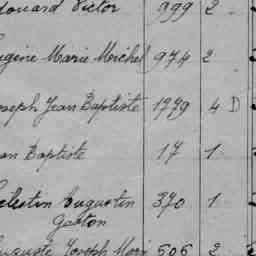 douard Victor 999 2
ugène Marie Michel 974 2
oseph Jean Baptiste 1779 4 D
an Baptiste 17 1
elestin Augustin 370 1
Gaston
uguste Joseph Mari 606 2